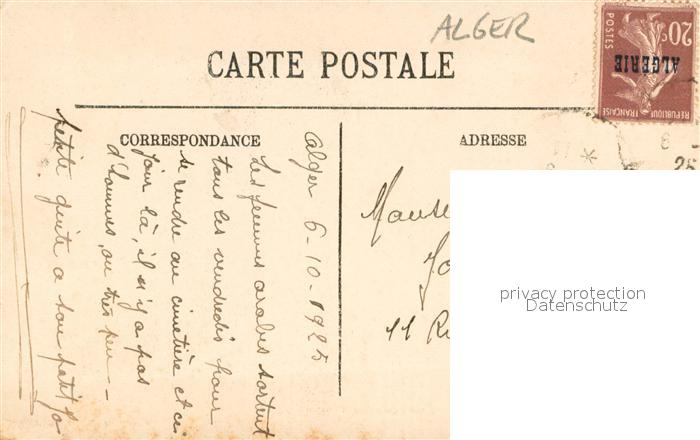 ALGER
CARTE POSTALE
20c
POSTES
ALGERIE
REPUBLIQUE FRANÇAISE
CORRESPONDANCE
ADRESSE
Alger 6-10-1925
Les femmes arabes sortent
tous les vendredis pour
se rendre au cimetière et ce
jour là, il n'y a pas
d'hommes, ou très peu -
petite à son petit Jo
11 R
25
privacy protection
Datenschutz